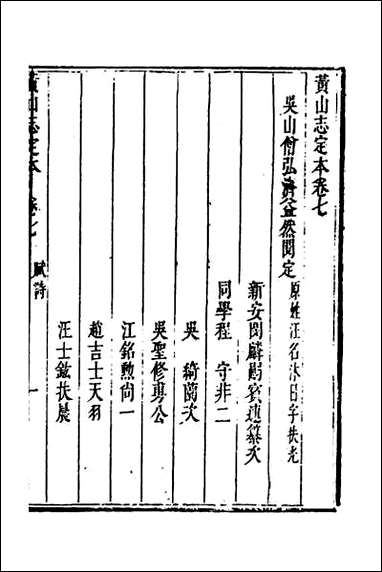 黃山志定本卷七
吳山僧弘濟益然閱定 原姓汪名沐日字扶光
新安閔麟嗣賓連纂次
同學程 守非二
吳 綺蘭次
吳聖修專公
江銘勲尚一
趙吉士天羽
汪士鋐扶晨
黃山志定本 卷七 賦詩 一